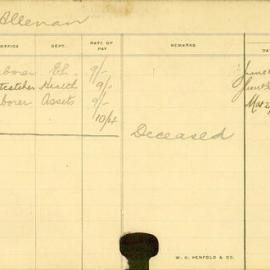 Alleman
OFFICE DEPT. RATE OF PAY REMARKS DA
borer El. 9/- June
tcatcher Health 9/- June
borer Assets 9/- Mar 2
10/64
Deceased
W. C. PENFOLD & CO.